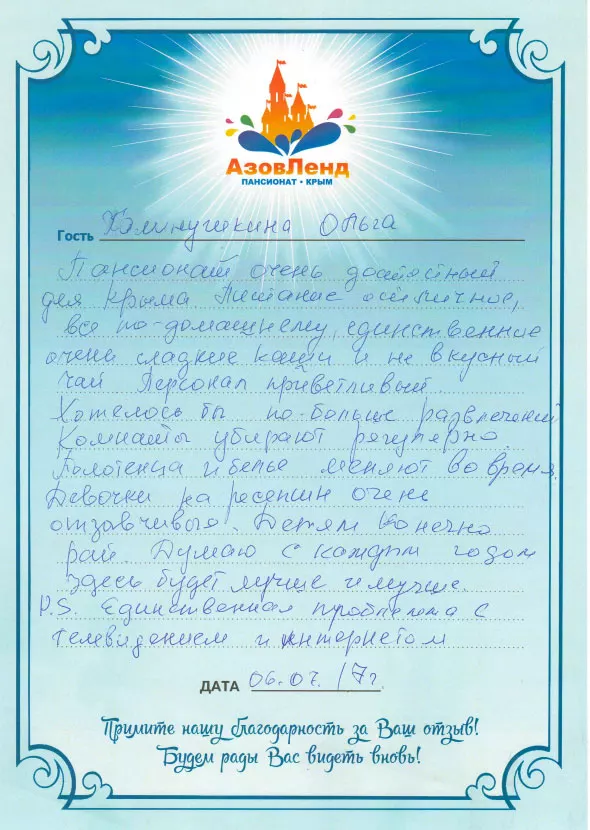 АзовЛенд
ПАНСИОНАТ • КРЫМ
Гость Ольга
Пансионат очень достойный
для Крыма Питание отличное,
всё по-домашнему, единственное
очень сладкие каши и не вкусный
чай Персонал приветливый.
Хотелось бы по-больше развлечений
Комнаты убирают регулярно.
Полотенца и белье меняют во время.
Девочки на ресепшн очень
отзывчивыя. Детям конечно
рай. Думаю с каждым годом
здесь будет лучше и лучше.
P.S. Единственная проблема с
телевидением и интернетом
ДАТА 06.07.17г.
Примите нашу благодарность за Ваш отзыв!
Будем рады Вас видеть вновь!